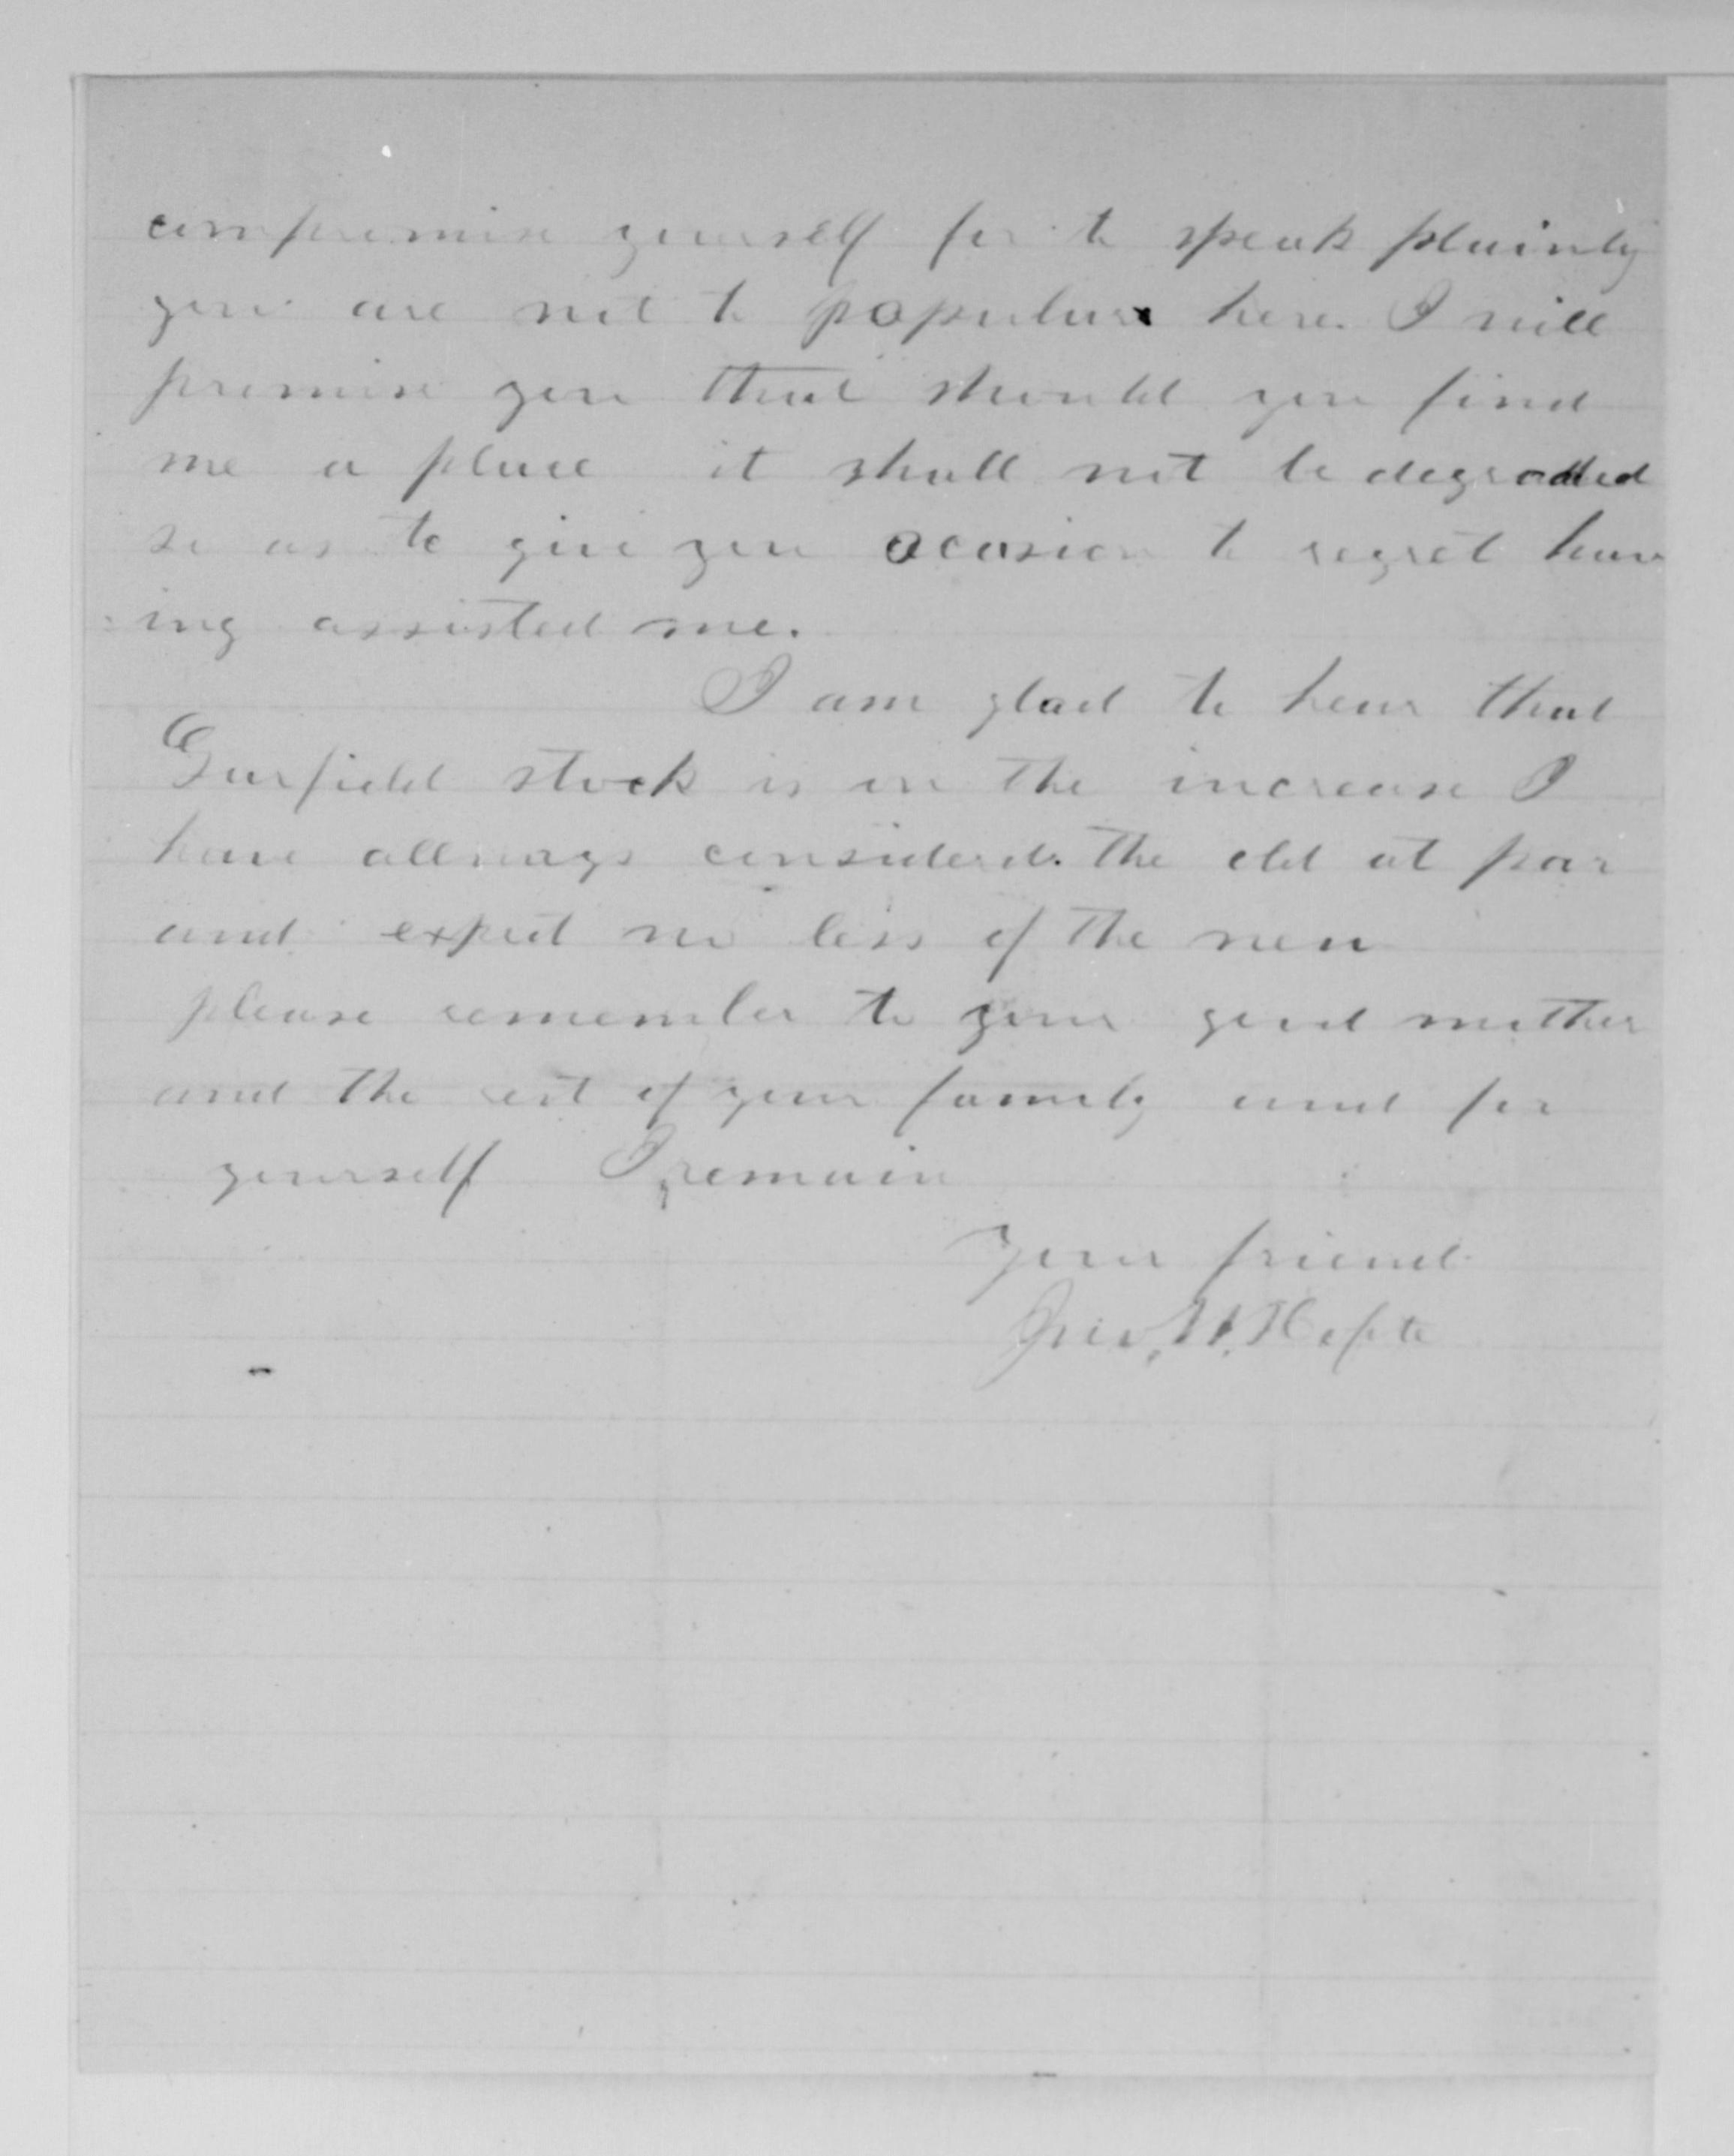 compromise yourself for to speak plainly
you are not to popular here. I will
promise you that should you find
me a place it shall not be degraded
so as to give you ocasion to regret hav
ing assisted me.
I am glad to hear that
Garfield stock is on the increase I
have allways considerd the old at par
and expect no less of the new
please remember to your good mother
and the rest of your family and for
yourself I remain
Your friend